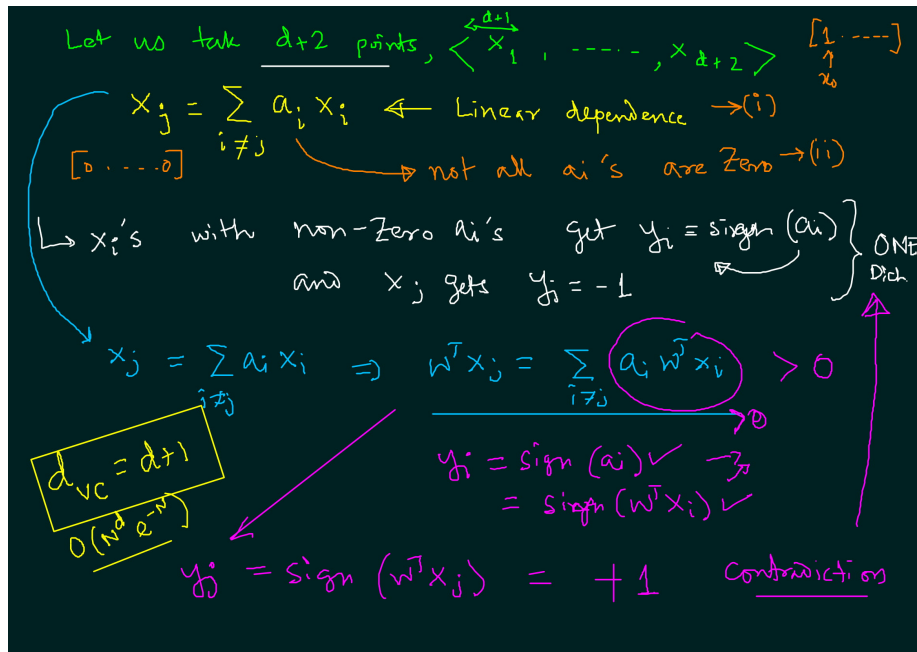 Let us tak d+2 points, < x₁ , ----- , x_{d+2} > [1 . ----]
d+1
↑
x₀
x_j = ∑_{i≠j} a_i x_i ← Linear dependence → (i)
[0 . . . . . 0] → not all ai's are Zero → (ii)
↳ x_i's with non-zero ai's get y_i = sirgn (ai) } ONE
and x_j gets y_j = -1 Dich.
x_j = ∑_{i≠j} a_i x_i ⇒ w^T x_j = ∑_{i≠j} a_i w^T x_i > 0
>0
d_VC = d+1
y_i = sign (ai) ✓
= sign (w^T x_i) ✓
O(N^d e^{-N})
y_j = sign (w^T x_j) = +1 Contradiction